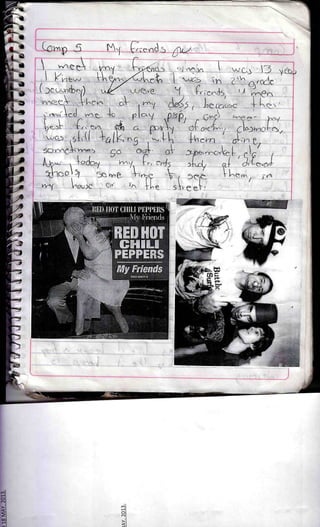 Comp 5 My friends
I meet my friends when I was 13 years
I knew them when I was in 2th grade
(secundary) we were 4 friends, 4 men
meet them at my class, because they
invited me to play psp, and meet my
best friend at a party of my clasmates,
was still talking with them online,
sometimes go out at supermarket,
today my friends study at diferent
schools some time I see them, in
my house or in the street.
RED HOT CHILI PEPPERS
My Friends
RED HOT
CHILI
PEPPERS
My Friends
15 MAY. 2013
AY. 2013